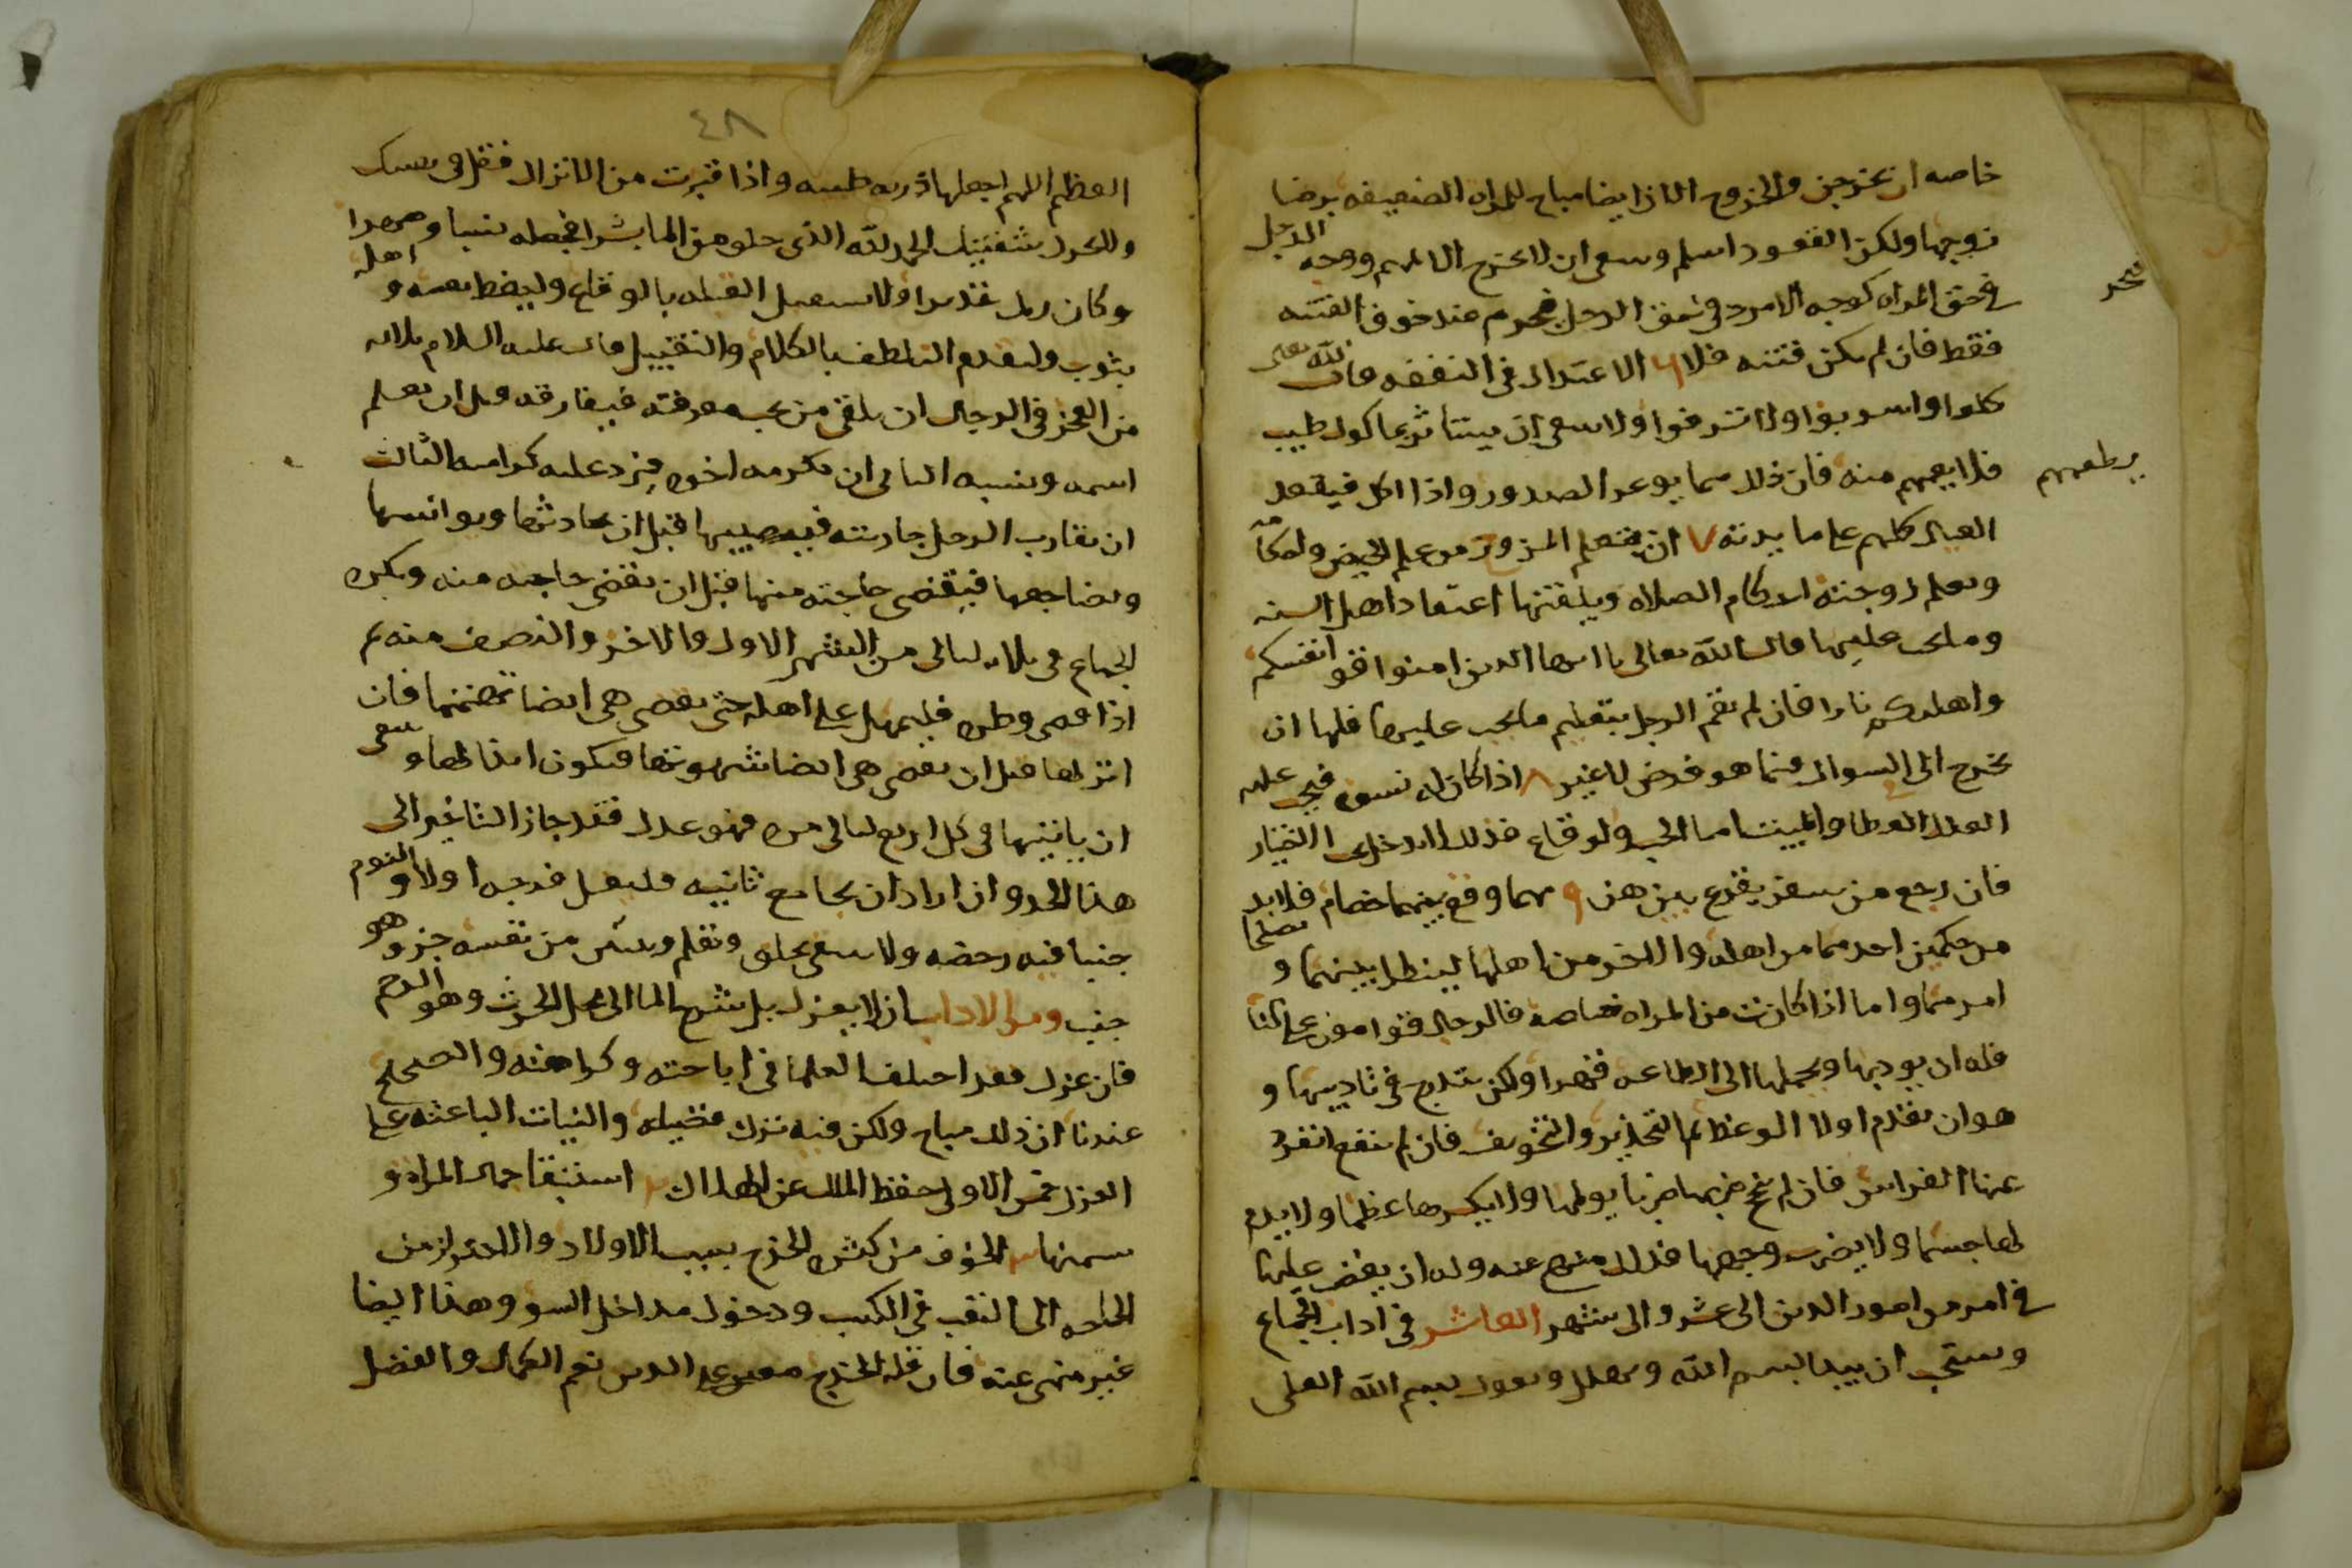 خاصه ان يخرجن والخروج الان ايضا مباح للمراه العفيفه برضا
زوجها ولكن القعود اسلم وينبغي ان لا تخرج الا لمهم ووجه الرجل
في حق المراه كوجه الامرد في حق الرجل فيحرم عند خوف الفتنه
فقط فان لم يكن فتنه فلا ٦ الاعتدال في النفقه قال الله تعالى
كلوا واشربوا ولا تسرفوا ولا ينبغي ان يستاثر بماكول طيب
فلا يطعمهم منه فان ذلك مما يوغر الصدور واذا اكل فيقعد
العيال كلهم على مايدته ٧ ان يتعلم المتزوج من علم الحيض واحكامه
ويعلم زوجته احكام الصلاه ويلقنها اعتقاد اهل السنه
وما يجب عليها قال الله تعالى يا ايها الذين امنوا قوا انفسكم
واهليكم نارا فان لم يقم الرجل بتعليم ما يجب عليها فلها ان
تخرج الى السوال فيما هو فرض لا غير ٨ اذا كان له نسوه فيجب عليه
العدل في العطا والمبيت اما الحب والوقاع فذلك لا يدخل تحت الاختيار
فان رجع من سفر يقرع بينهن ٩ مهما وقع بينهما خصام فلا بد
من حكمين احدهما من اهله والاخر من اهلها لينظرا بينهما ويصلحا
امرهما واما اذا كانت من المراه خاصه فالرجال قوامون على النسا
فله ان يودبها ويحملها الى الطاعه قهرا ولكن يتدرج في تاديبها و
هو ان يقدم اولا الوعظ ثم التحذير والتخويف فان لم ينفع انفرد
عنها الفراش فان لم ينجح ضربها ضربا يولمها ولا يكسر لها عظما ولا يدم
لها جسما ولا يضرب وجهها فذلك منهي عنه وله ان يغضب عليها
في امر من امور الدين الى عشر والى شهر العاشر في اداب الجماع
ويستحب ان يبدا ببسم الله ويهلل ويقول بسم الله العلي
يطعمهم
٤٨
العظيم اللهم اجعلها ذريه طيبه واذا قربت من الانزال فقل في نفسك
ولا تحرك شفتيك الحمد لله الذي خلق من الما بشرا فجعله نسبا وصهرا
وكان ربك قديرا ولا يستقبل القبله بالوقاع وليغط نفسه واهله
بثوب وليقدم التلطف بالكلام والتقبيل قال عليه السلام ثلاثه
من العجز في الرجل ان يلقى من يحب معرفته فيفارقه قبل ان يعلم
اسمه ونسبه الثاني ان يكرمه اخوه فيرد عليه كرامته الثالث
ان يقارب الرجل جاريته فيصيبها قبل ان يحادثها ويوانسها
ويضاجعها فيقضي حاجته منها قبل ان تقضي حاجتها منه ويكره
الجماع في ثلاث ليالي من الشهر الاول والاخر والنصف منه ثم
اذا قضى وطره فليمهل على اهله حتى تقضي هي ايضا نهمتها فان
انزلها قبل ان تقضي هي ايضا شهوتها فيكون ايذا لها وينبغي
ان ياتيها في كل اربع ليالي مره فهو عدل فقد جاز التاخير الى
هذا الحد وان اراد ان يجامع ثانيه فليغسل فرجه اولا والنوم
جنبا فيه رخصه ولا ينبغي يحلق ويقلم ويبين من نفسه جزو وهو
جنب ومن الاداب ان لا يعزل بل يسرح الما الى محل الحرث وهو الرحم
فان عزل فقد اختلف العلما في اباحته وكراهته والصحيح
عندنا ان ذلك مباح ولكن فيه ترك فضيله والنيات الباعثه على
العزل خمس الاولى حفظ الملك عن الهلاك ٢ استبقا جمال المراه و
سمنها ٣ الخوف من كثره الحرج بسبب الاولاد والاحتراز من
الحاجه الى التعب في الكسب ودخول مداخل السو وهذا ايضا
غير منهي عنه فان قله الحرج معين على الدين نعم الكمال والفضل